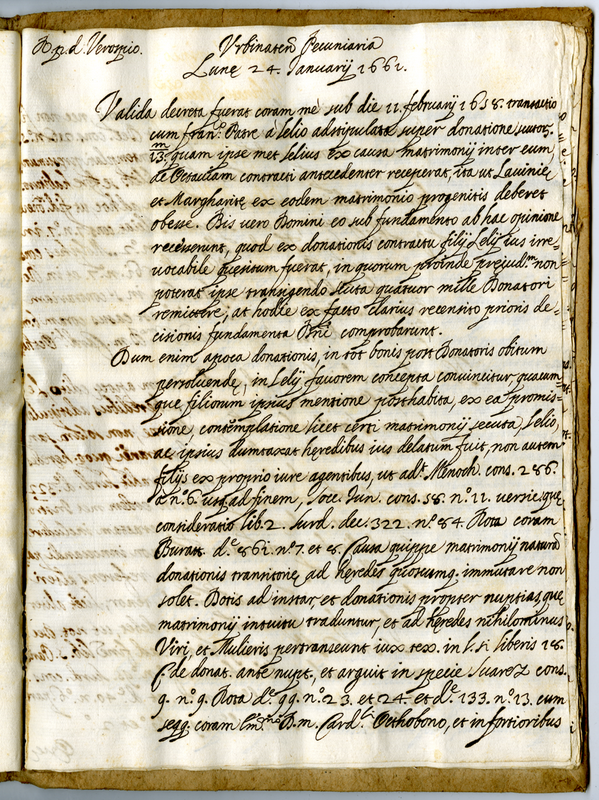 R. p. d. Verospio.
Urbinaten Pecuniaria
Lune 24. Januarij 1661.
Valida decreta fuerat coram me sub die 11. februarij 1658. transactio
cum fran.º Patre a Lelio adstipulata super donatione scutor.
m/13. quam ipse met Lelius ex causa matrimonij inter eum,
de Octaviam contracti antecedenter receperat, ita ut Lavinie,
et Margharite ex eodem matrimonio progenitis deberet
obesse. Bis vero Domini eo sub fundamento ab hac opinione
recesserunt, quod ex donationis contractu filijs Lelij ius irre-
vocabile quesitum fuerat, in quorum proinde prejud.m non
poterat ipse transigendo scuta quatuor mille Donatori
remittere, at hodie ex facto clarius recensito prioris de-
cisionis fundamenta Dni comprobarunt.
Dum enim apoca donationis, in tot bonis post Donatoris obitum
persoluende, in Lelij favorem concepta convincitur, quacum-
que filiorum ipsius mentione posthabita, ex ea promis-
sione contemplatione licet certi matrimonij secuta, Lelio,
ac ipsius dumtaxat heredibus ius delatum fuit, non autem
filijs ex proprio iure agentibus, ut ad.t Menoch. cons. 286.
a n.º 6. usq. ad finem, Soc. Jun. cons. 58. n.º 11. versic. que
consideratio lib. 2. Surd. dec. 322. n.º 84. Rota coram
Buratt. d.e 861. n.º 7. et 8. Causa quippe matrimonij natura
donationis transitorie ad heredes quoscumq. immutare non
solet. Dotis ad instar, et donationis propter nuptias, que
matrimonij intuitu traduntur, et ad heredes nihilominus
Viri, et Mulieris pertranseunt iux. tex. in l. si liberis 18.
C. de donat. ante nupt., et arguit in specie Suarez cons.
9. n.º 9. Rota d.e 99. n.º 23. et 24. et d.e 133. n.º 13. cum
seqq. coram Em.mo D. m. Card.li Otthobono, et in fortioribus